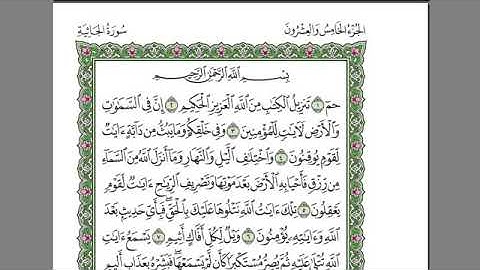 سُورَةُ الجَاثِيَةِ الجُزْءُ الخَامِسُ وَالعِشْرُونَ
بِسْمِ اللَّهِ الرَّحْمَٰنِ الرَّحِيمِ
حمٓ ١ تَنزِيلُ الْكِتَٰبِ مِنَ اللَّهِ الْعَزِيزِ الْحَكِيمِ ٢ إِنَّ فِي السَّمَٰوَٰتِ
وَالْأَرْضِ لَءَايَٰتٍ لِّلْمُؤْمِنِينَ ٣ وَفِي خَلْقِكُمْ وَمَا يَبُثُّ مِن دَآبَّةٍ ءَايَٰتٌ
لِّقَوْمٍ يُوقِنُونَ ٤ وَاخْتِلَٰفِ الَّيْلِ وَالنَّهَارِ وَمَآ أَنزَلَ اللَّهُ مِنَ السَّمَآءِ
مِن رِّزْقٍ فَأَحْيَا بِهِ الْأَرْضَ بَعْدَ مَوْتِهَا وَتَصْرِيفِ الرِّيَٰحِ ءَايَٰتٌ لِّقَوْمٍ
يَعْقِلُونَ ٥ تِلْكَ ءَايَٰتُ اللَّهِ نَتْلُوهَا عَلَيْكَ بِالْحَقِّ فَبِأَيِّ حَدِيثٍ بَعْدَ
اللَّهِ وَءَايَٰتِهِ يُؤْمِنُونَ ٦ وَيْلٌ لِّكُلِّ أَفَّاكٍ أَثِيمٍ ٧ يَسْمَعُ ءَايَٰتِ
اللَّهِ تُتْلَىٰ عَلَيْهِ ثُمَّ يُصِرُّ مُسْتَكْبِرًا كَأَن لَّمْ يَسْمَعْهَا فَبَشِّرْهُ بِعَذَابٍ أَلِيمٍ